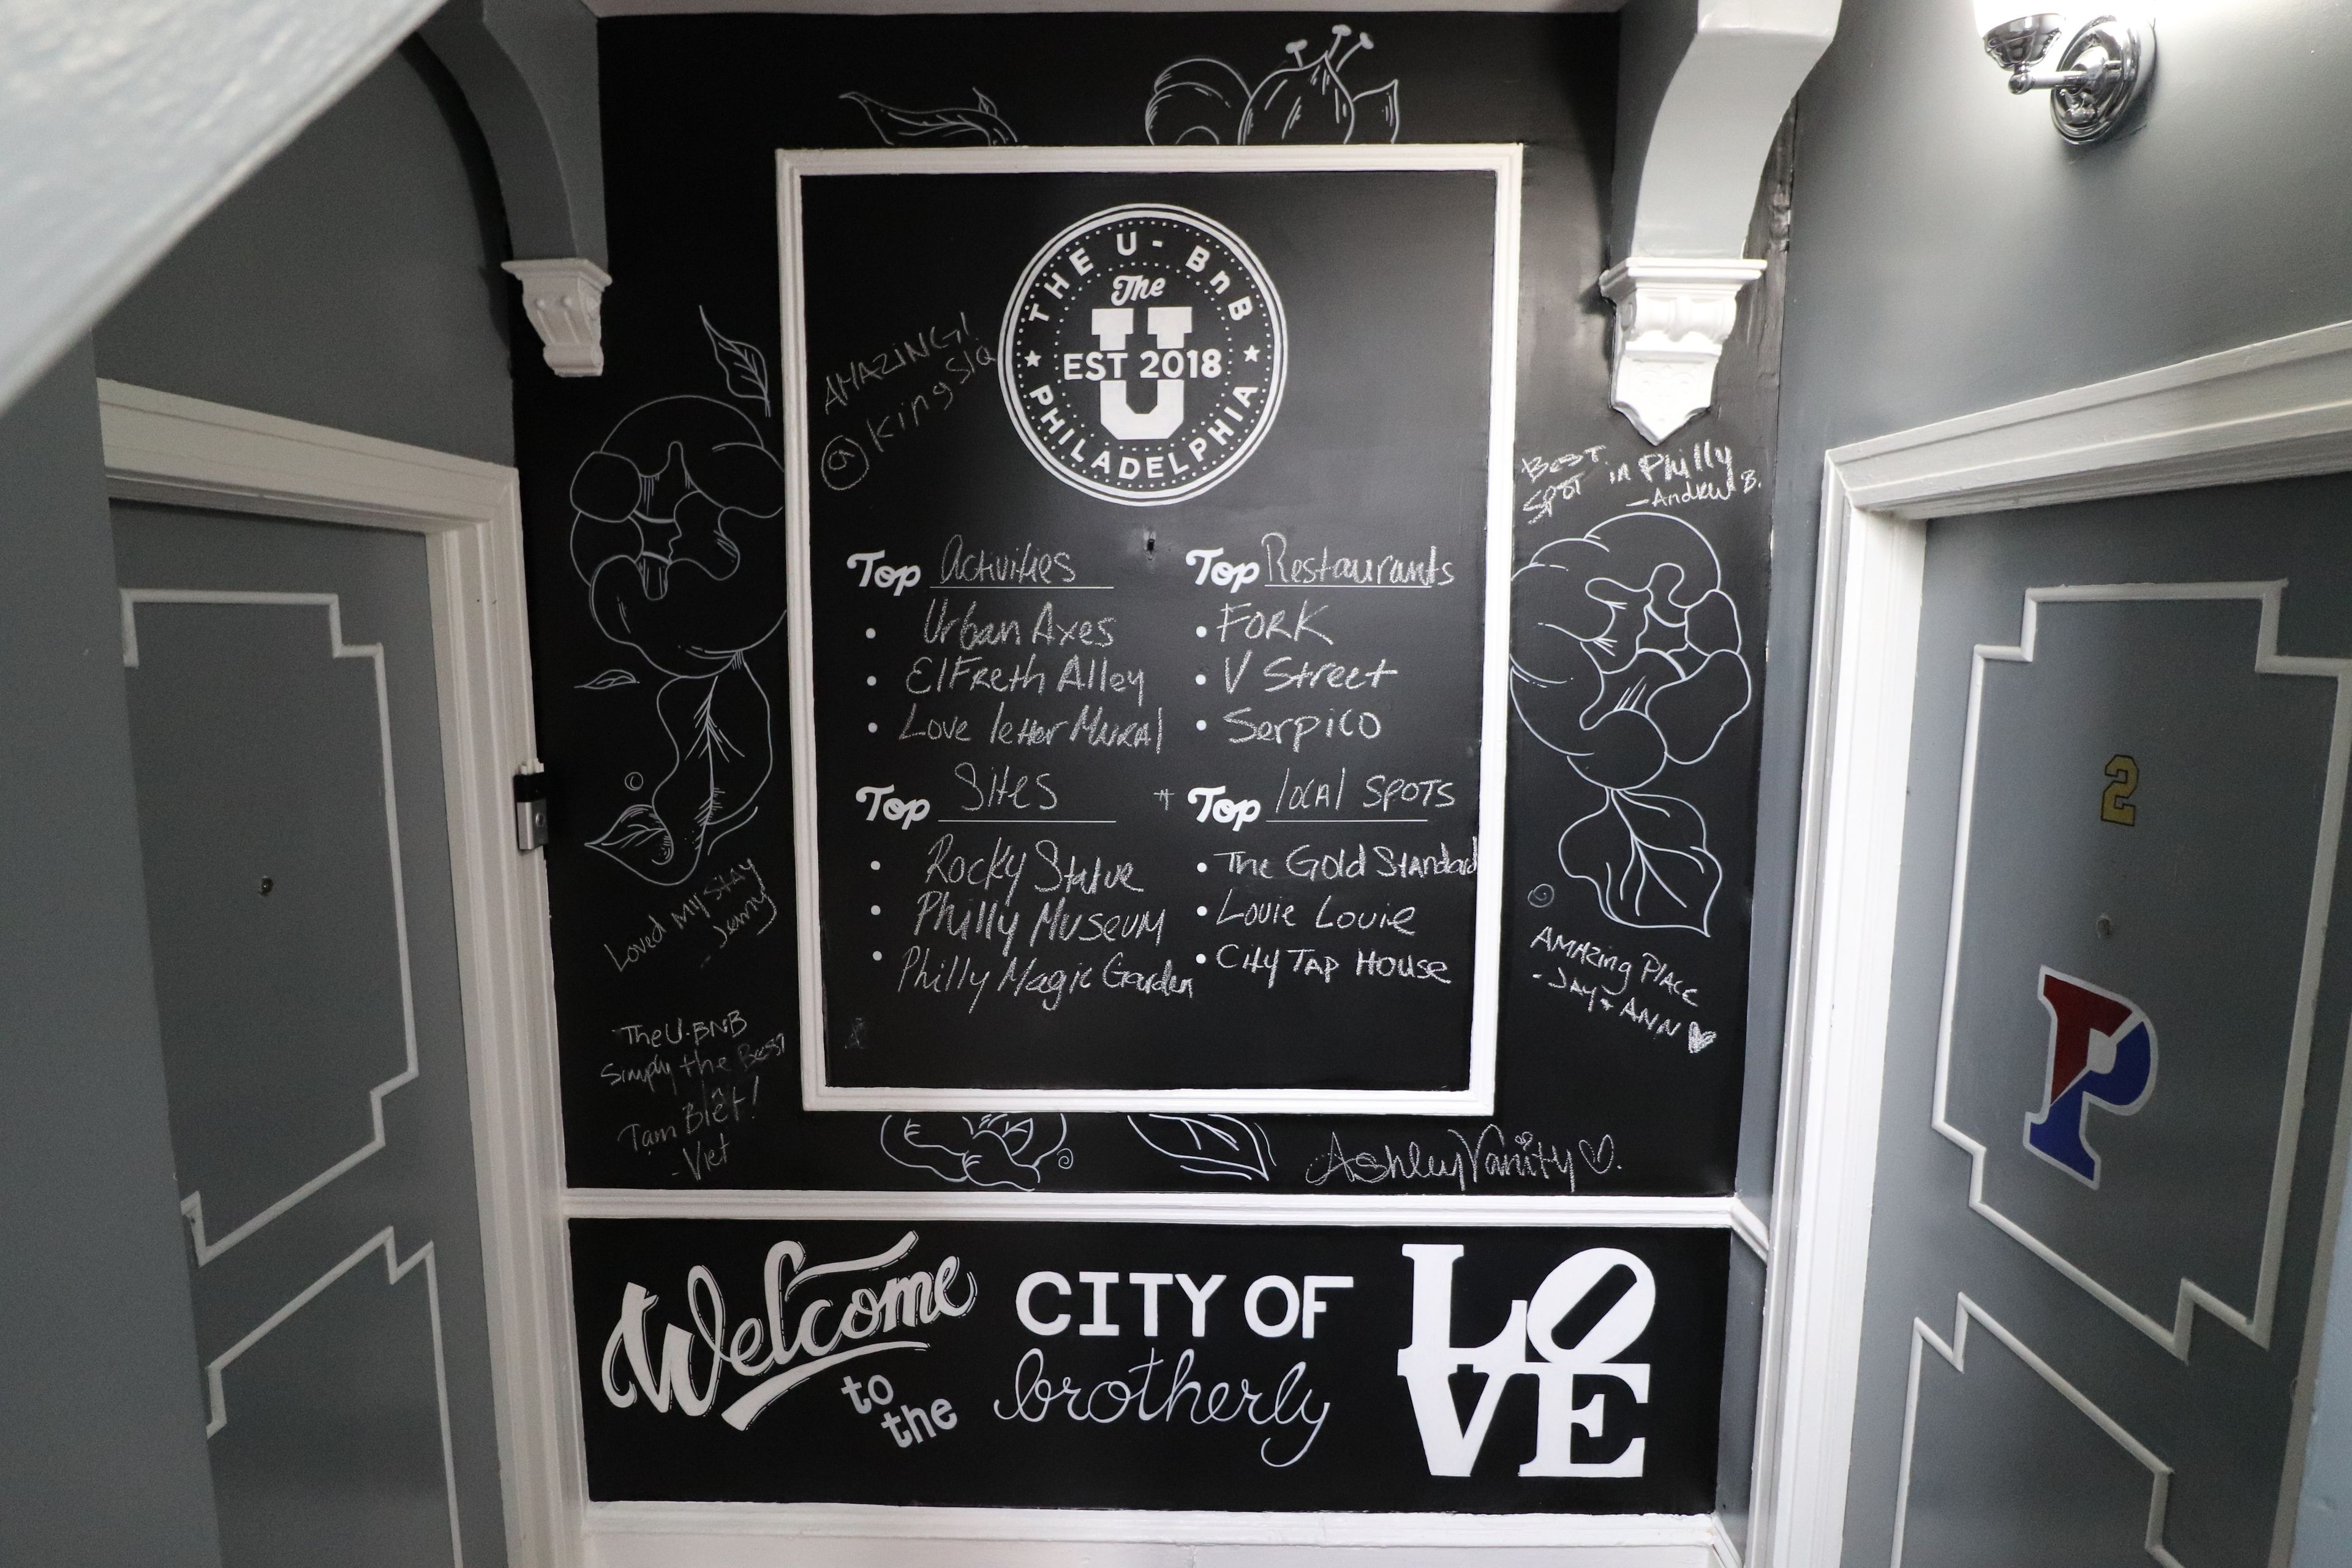 THE U - BnB
The
U
EST 2018
PHILADELPHIA
AMAZING!
@kingsla
Top Activities
• Urban Axes
• ElFreth Alley
• Love letter Mural
Top Restaurants
• FORK
• V Street
• Serpico
Top Sites
• Rocky Statue
• Philly Museum
• Philly Magic Garden
+ Top local SPOTS
• The Gold Standard
• Louie Louie
• City Tap House
BEST in Philly
SPOT - Andrew B.
Loved My Stay
- Jenny
The U.BNB
Simply the Best
Tạm Biệt!
- Viet
AMAzing Place
- JAY + ANN
AshleyVanity
Welcome
to
the
CITY OF
brotherly
LO
VE
2
P